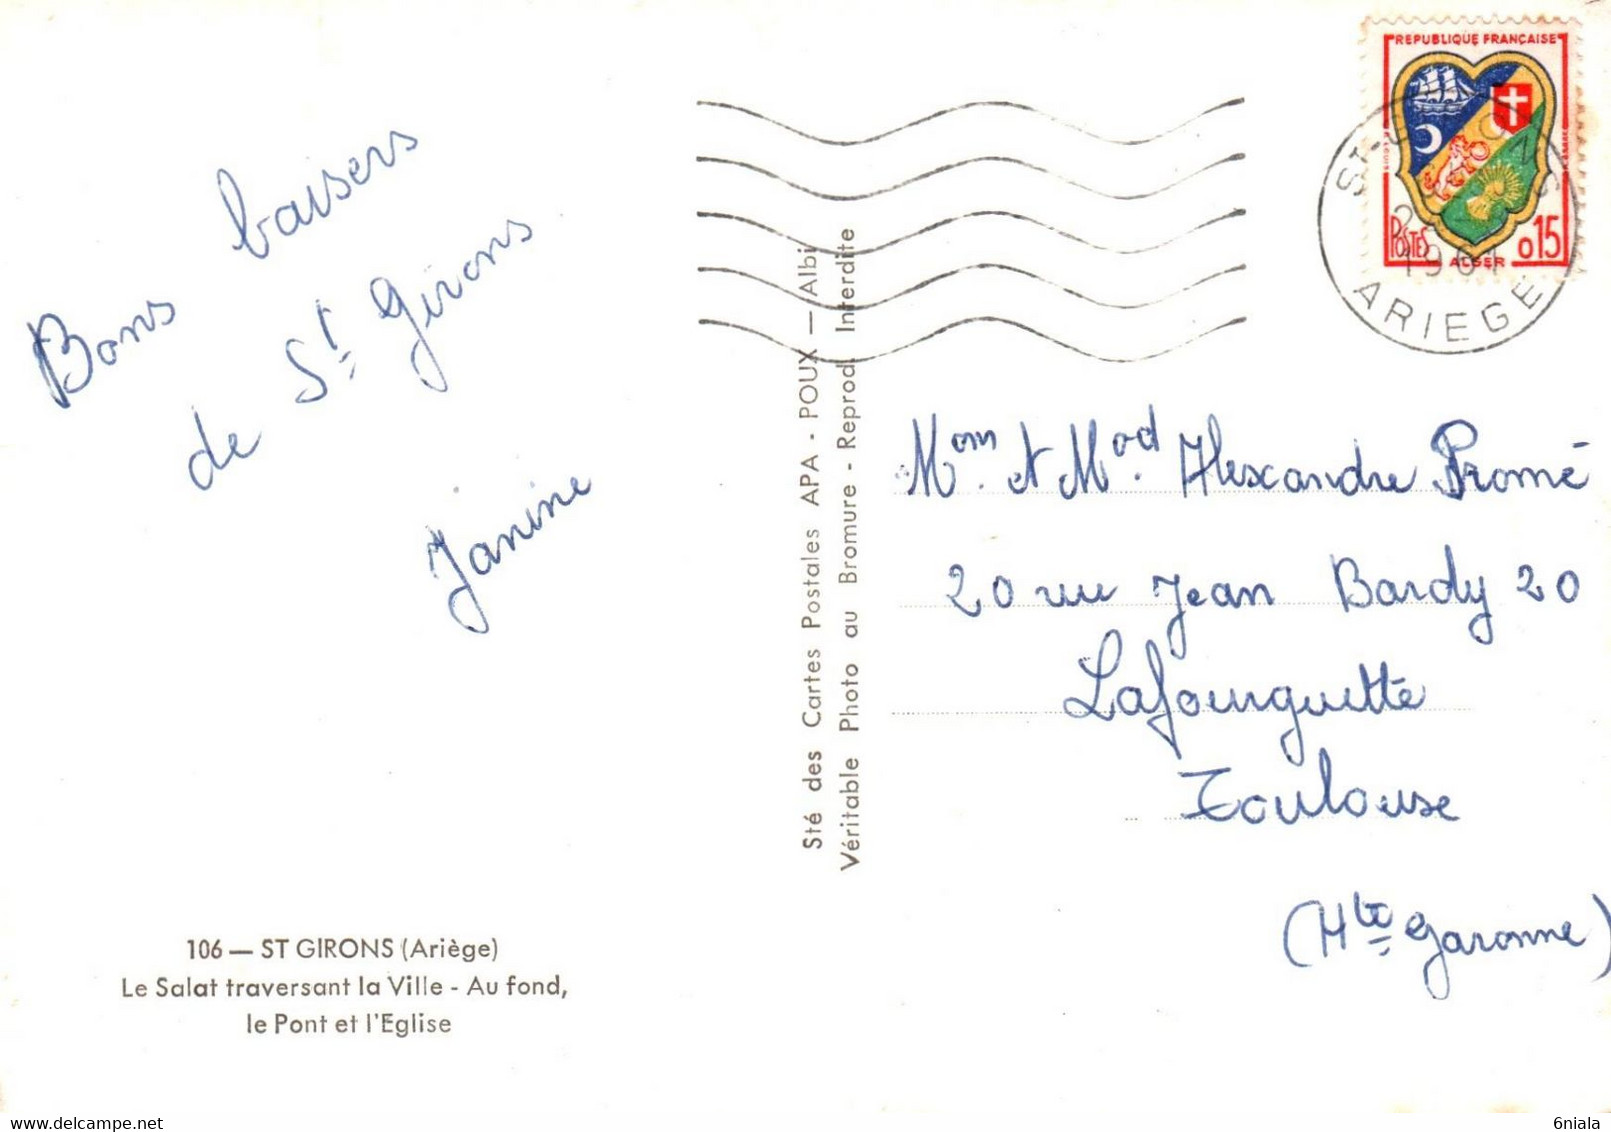 REPUBLIQUE FRANÇAISE
POSTES
ALGER
0,15
ST-GIRONS
ARIEGE
Bons baisers
de St Girons
Janine
Sté des Cartes Postales APA - POUX — Albi
Véritable Photo au Bromure - Reprod. Interdite
Mom. et Mad. Alexandre Promé
20 rue Jean Bardy 20
Lafourguette
Toulouse
(Hte Garonne)
106 — ST GIRONS (Ariège)
Le Salat traversant la Ville - Au fond,
le Pont et l'Eglise
6niala